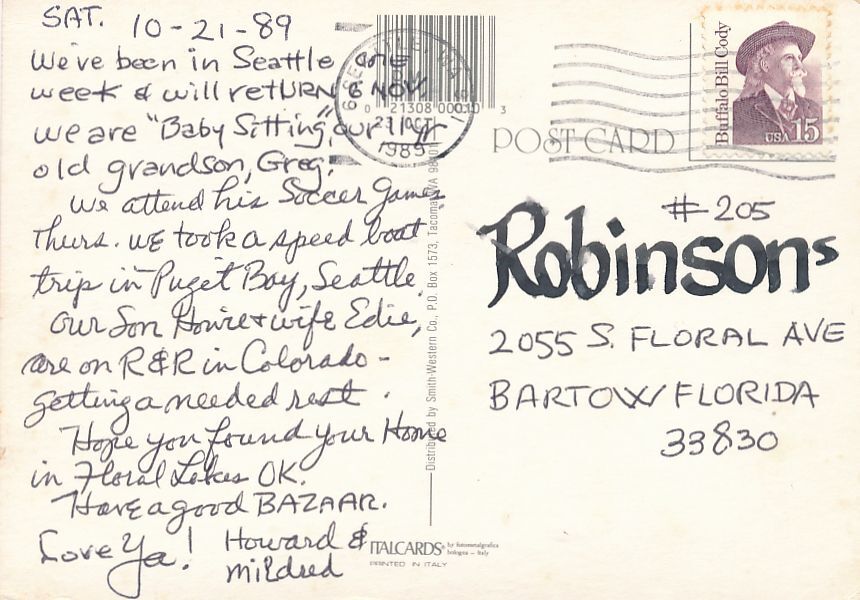 SAT. 10-21-89
We've been in Seattle one
week & will retURN 6 NOV.
we are "Baby Sitting" our 11 yr
old grandson, Greg.
We attend his Soccer Games
Thurs. WE took a speed boat
trip in Puget Bay, Seattle.
Our Son Howie & wife Edie,
are on R&R in Colorado -
getting a needed rest.
Hope you found your Home
in Floral Lakes OK.
Have a good BAZAAR.
Love Ya! Howard &
Mildred
SEATTLE, WA
21 OCT
1989
0 21308 00010 3
POST CARD
Buffalo Bill Cody
USA 15
Distributed by Smith-Western Co., P.O. Box 1573, Tacoma, WA 98401
# 205
Robinsons
2055 S. FLORAL AVE
BARTOW FLORIDA
33830
ITALCARDS® by fotometalgrafica
bologna - Italy
PRINTED IN ITALY